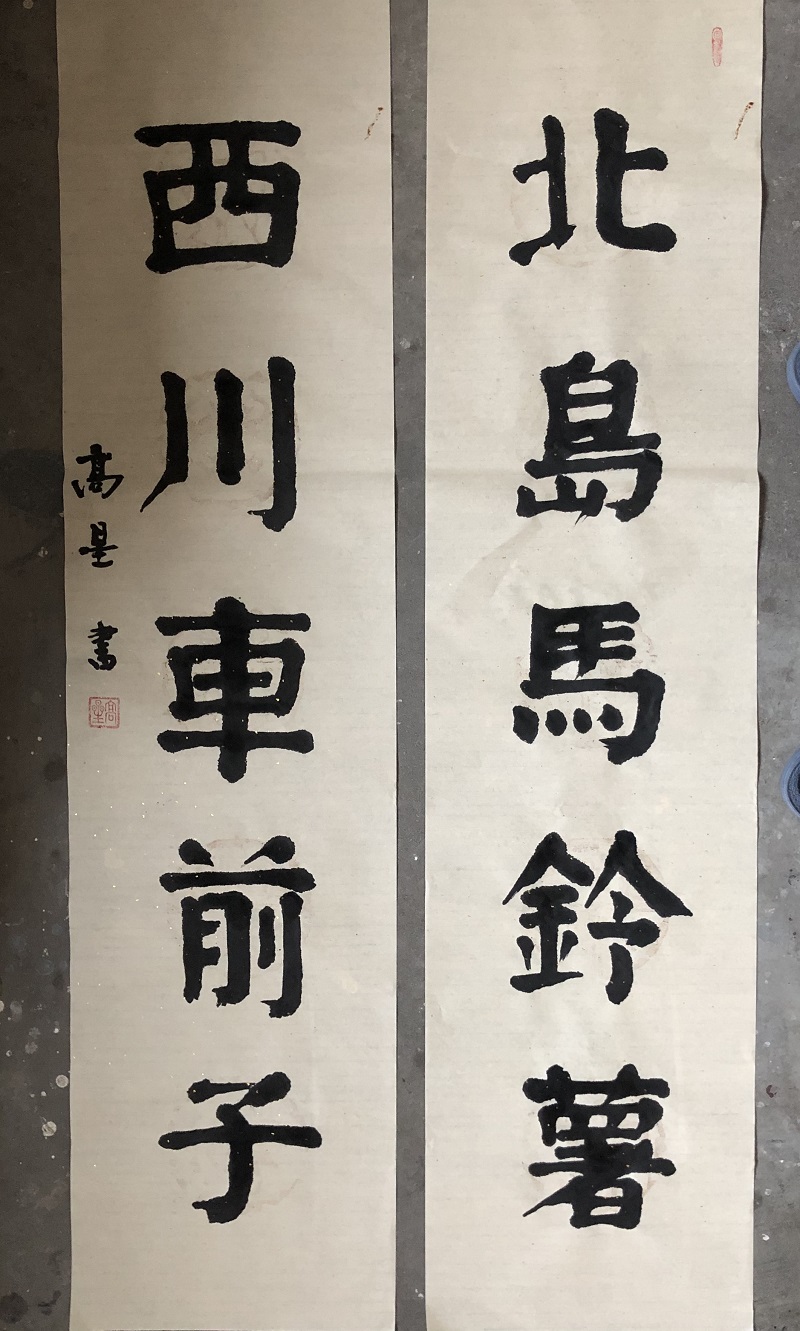 北島馬鈴薯
西川車前子
高星書